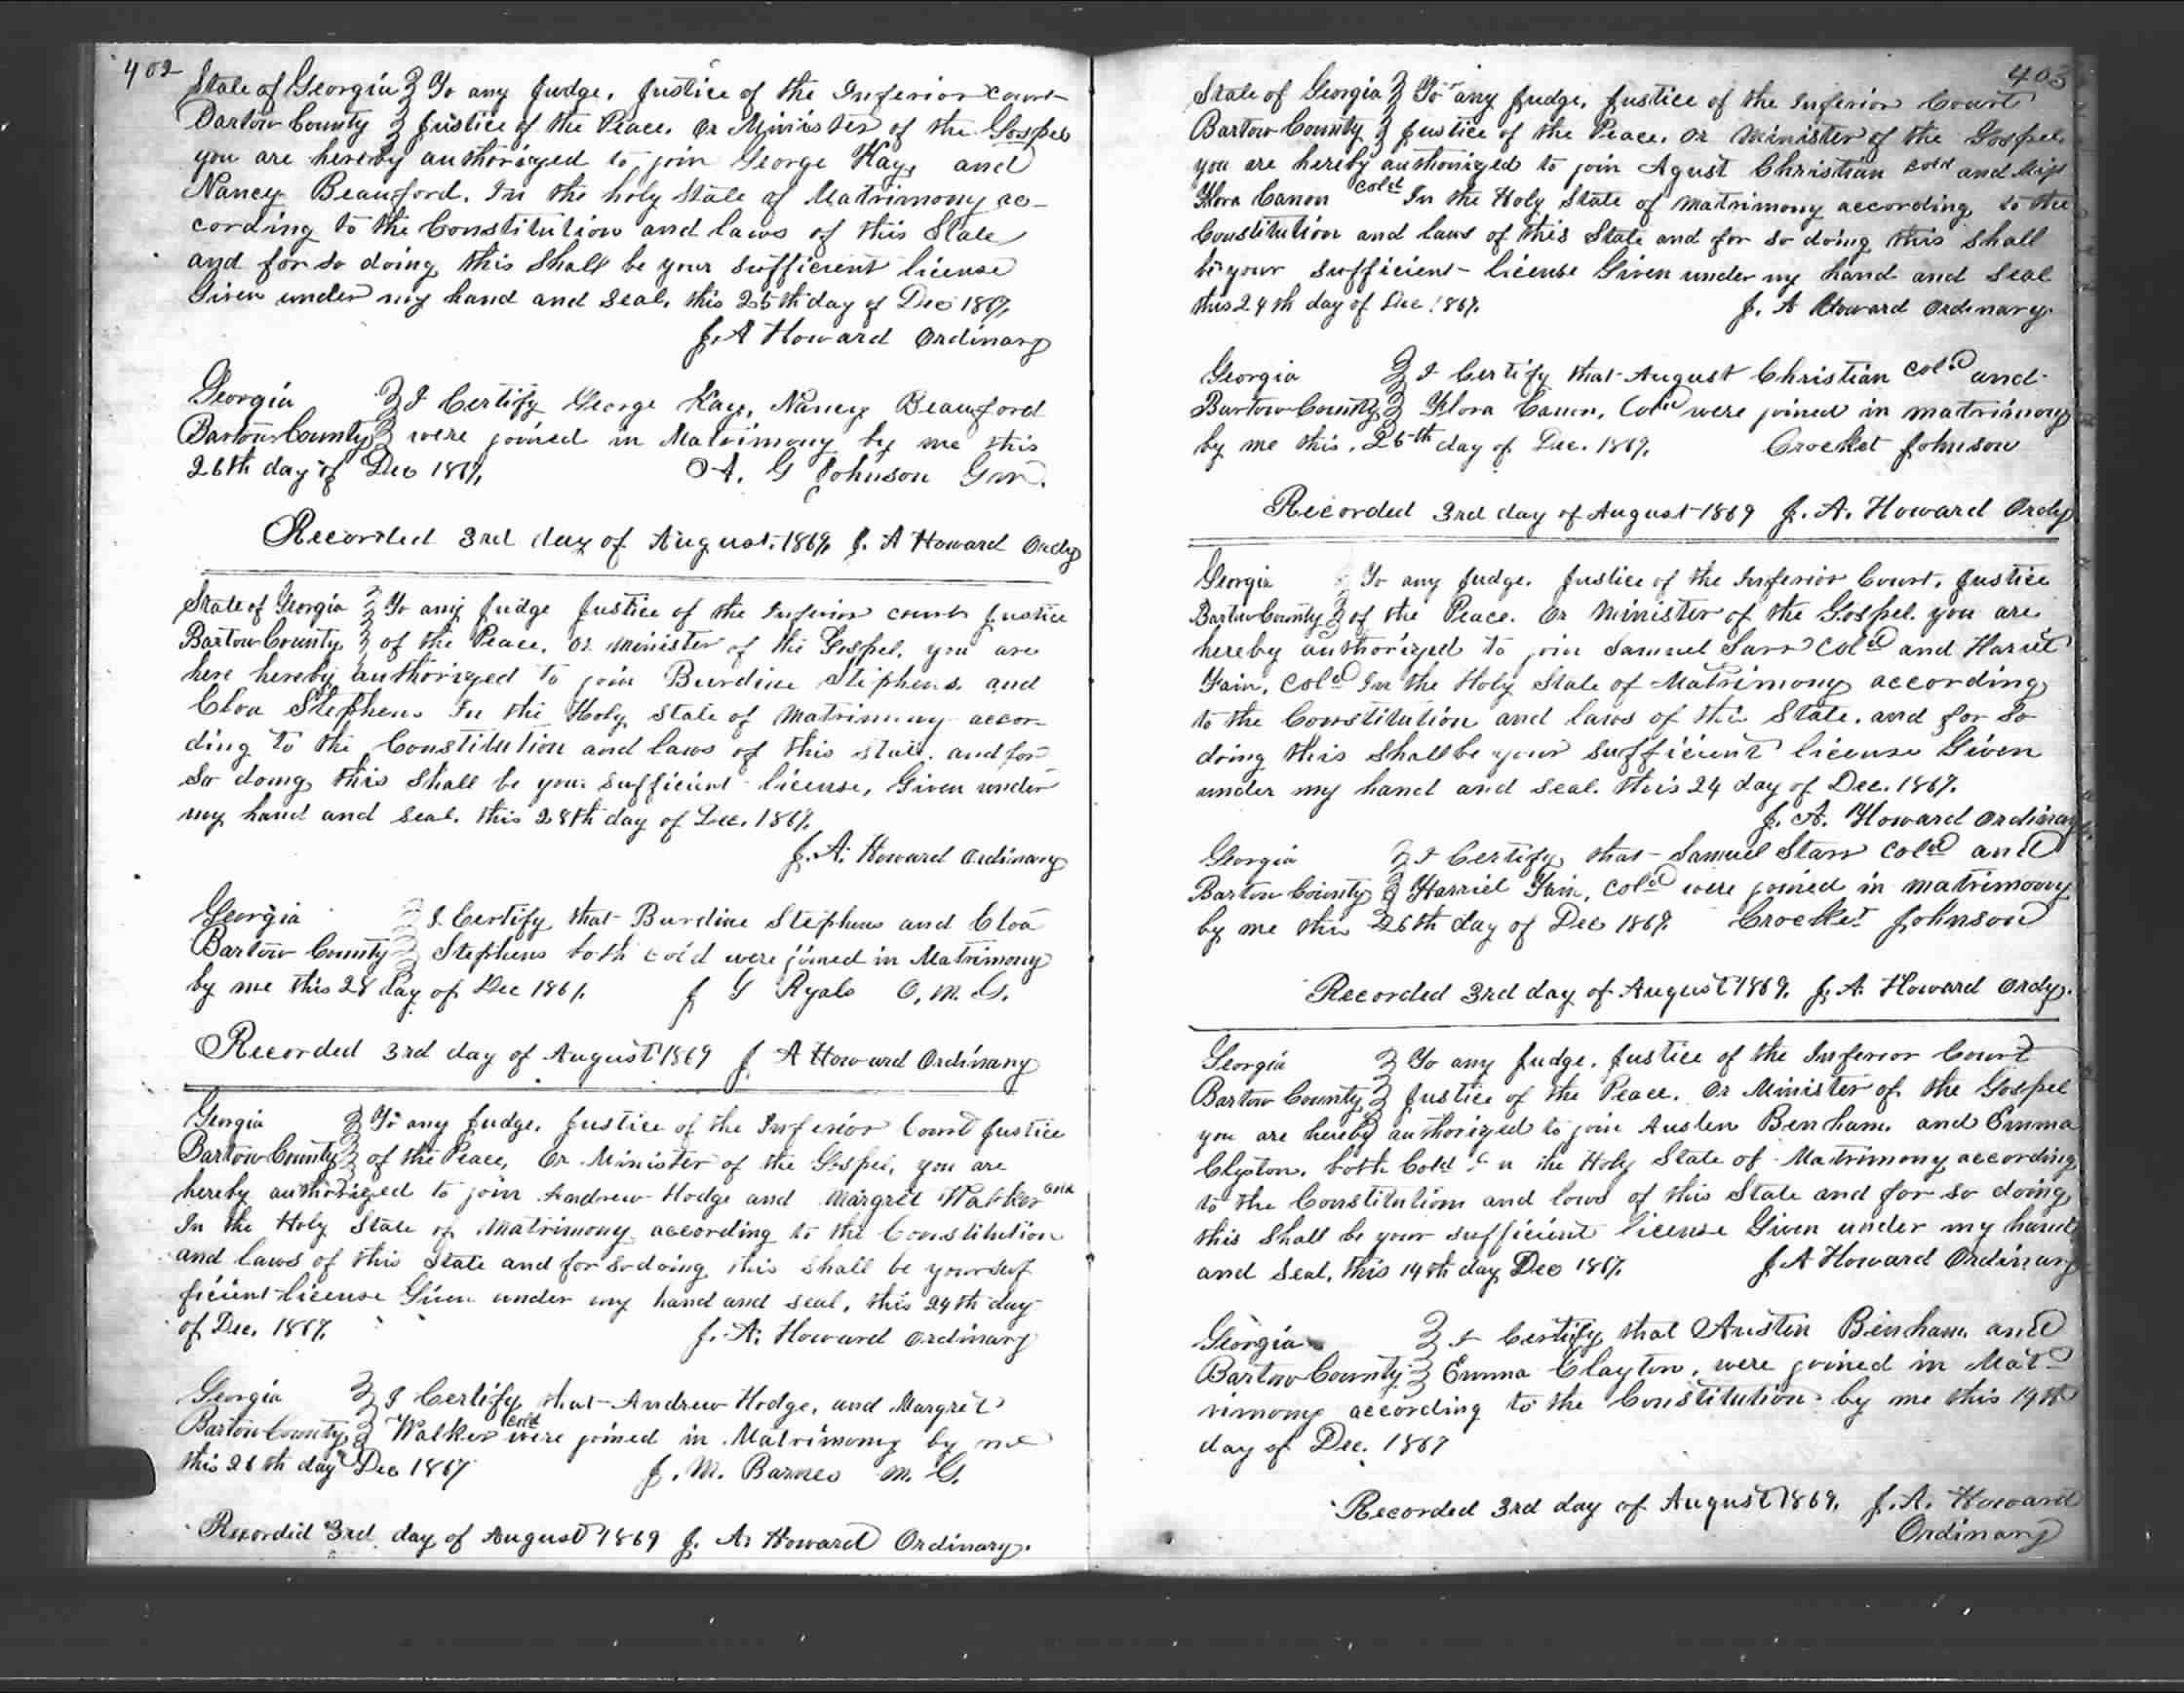 402
State of Georgia } To any Judge, Justice of the Inferior Court
Bartow County } Justice of the Peace, Or Minister of the Gospel
you are hereby authorized to join George Kay, and
Nancy Beauford, In the holy State of Matrimony ac-
cording to the Constitution and laws of this State
and for so doing this shall be your sufficient license
Given under my hand and seal, this 25th day of Dec 1867,
J. A Howard Ordinary
Georgia } I Certify George Kay, Nancy Beauford
Bartow County } were joined in Matrimony by me this
26th day of Dec 1867, A. G Johnson
Recorded 3rd day of August, 1869, J. A Howard Ordy
State of Georgia } To any Judge Justice of the Inferior court Justice
Bartow County } of the Peace, Or minister of the Gospel, you are
here hereby authorized to join Burdine Stephens and
Cloa Stephens In the Holy State of Matrimony accor-
ding to the Constitution and laws of this state, and for
so doing this shall be your sufficient license, Given under
my hand and seal, this 28th day of Dec. 1867,
J. A. Howard Ordinary
Georgia } I Certify that Burdine Stephens and Cloa
Bartow County } Stephens both cold were joined in Matrimony
by me this 28 day of Dec 1867. J G Ryals O. M. G.
Recorded 3rd day of August 1869 J A Howard Ordinary
Georgia } To any Judge, Justice of the Inferior Court Justice
Bartow County } of the Peace, Or Minister of the Gospel, you are
hereby authorized to join Andrew Hodge and Margret Walker cold
In the Holy State of Matrimony according to the Constitution
and laws of this State and for so doing this shall be your suf
ficient license Given under my hand and seal, this 24th day
of Dec. 1867. J. A. Howard Ordinary
Georgia } I Certify that Andrew Hodge, and Margret
Bartow County } Walker cold were joined in Matrimony by me
this 26th day Dec 1867 J. M. Barnes M. G.
Recorded 3rd day of August 1869 J. A. Howard Ordinary.
403
State of Georgia } To any Judge, Justice of the Inferior Court
Bartow County } Justice of the Peace, Or Minister of the Gospel,
you are hereby authorized to join Agust Christian cold and Miss
Flora Canon cold In the Holy State of Matrimony according to the
Constitution and laws of this State and for so doing this shall
be your sufficient license Given under my hand and seal
this 24th day of Dec. 1867. J. A Howard Ordinary
Georgia } I Certify that August Christian cold and
Bartow County } Flora Canon, Cold were joined in matrimony
by me this, 26th day of Dec. 1867. Crocket Johnson
Recorded 3rd day of August 1869 J. A. Howard Ordy
Georgia } To any Judge, Justice of the Inferior Court, Justice
Bartow County } of the Peace. Or Minister of the Gospel. you are
hereby authorized to join Samuel Sarr Cold and Hariet
Fain, Cold In the Holy State of Matrimony according
to the Constitution and laws of this State, and for so
doing this shall be your sufficient license Given
under my hand and seal. this 24 day of Dec. 1867.
J. A. Howard Ordinary
Georgia } I Certify that Samuel Starr cold and
Bartow County } Harriet Fain, cold were joined in matrimony
by me this 26th day of Dec 1867. Crocket Johnson
Recorded 3rd day of August 1869. J. A. Howard Ordy.
Georgia } To any Judge, Justice of the Inferior Court
Bartow County } Justice of the Peace, Or Minister of the Gospel
you are hereby authorized to join Austen Bencham, and Emma
Clyston, both Cold In the Holy State of Matrimony according
to the Constitution and laws of this State and for so doing
this shall be your sufficient license Given under my hand
and seal, this 14th day Dec 1867. J A Howard Ordinary
Georgia } I Certify that Austin Bencham, and
Bartow County } Emma Clayton, were joined in Mat-
rimony according to the Constitution by me this 19th
day of Dec. 1867
Recorded 3rd day of August 1869. J. A. Howard
Ordinary